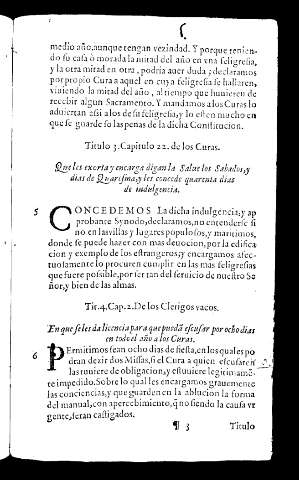 medio año, aunque tengan vezindad. Y porque tenien-
do su casa ò morada la mitad del año en vna feligresia,
y la otra mitad en otra, podria auer duda; declaramos
por propio Cura aquel en cuya feligresia se hallaren,
viuiendo la mitad del año, al tiempo que huuieren de
recebir algun Sacramento. Y mandamos a los Curas lo
aduiertan assi a los de su feligresia, y lo esten mucho en
que se guarde so las penas de la dicha Constitucion.
Titulo 3. Capitulo 22. de los Curas.
Que les exorta y encarga digan la Salue los Sabados, y
dias de Quaresma, y les concede quarenta dias
de indulgencia.
5 CONCEDEMOS La dicha indulgencia, y ap
probante Synodo, declaramos, no entenderse si
no en las villas y lugares populosos, y maritimos,
donde se puede hazer con mas deuocion, por la edifica
cion y exemplo de los estrangeros, y encargamos afec-
tuosamente lo procuren cumplir en las mas feligresias
que fuere possible, por ser tan del seruicio de nuestro Se
ñor, y bien de las almas.
Tit. 4. Cap. 2. De los Clerigos vacos.
En que se les da licencia para que puedã escusar por ocho dias
en todo el año a los Curas.
6 PErmitimos sean ocho dias de fiesta, en los quales po
dran dezir dos Missas, si el Cura a quien escusaren
las tuuiere de obligacion, y estuuiere legitimamẽ-
te impedido. Sobre lo qual les encargamos grauemente
las conciencias, y que guarden en la ablucion la forma
del manual, con apercebimiento, q̃ no siendo la causa vr
gente, seran castigados.
¶ 3 Titulo